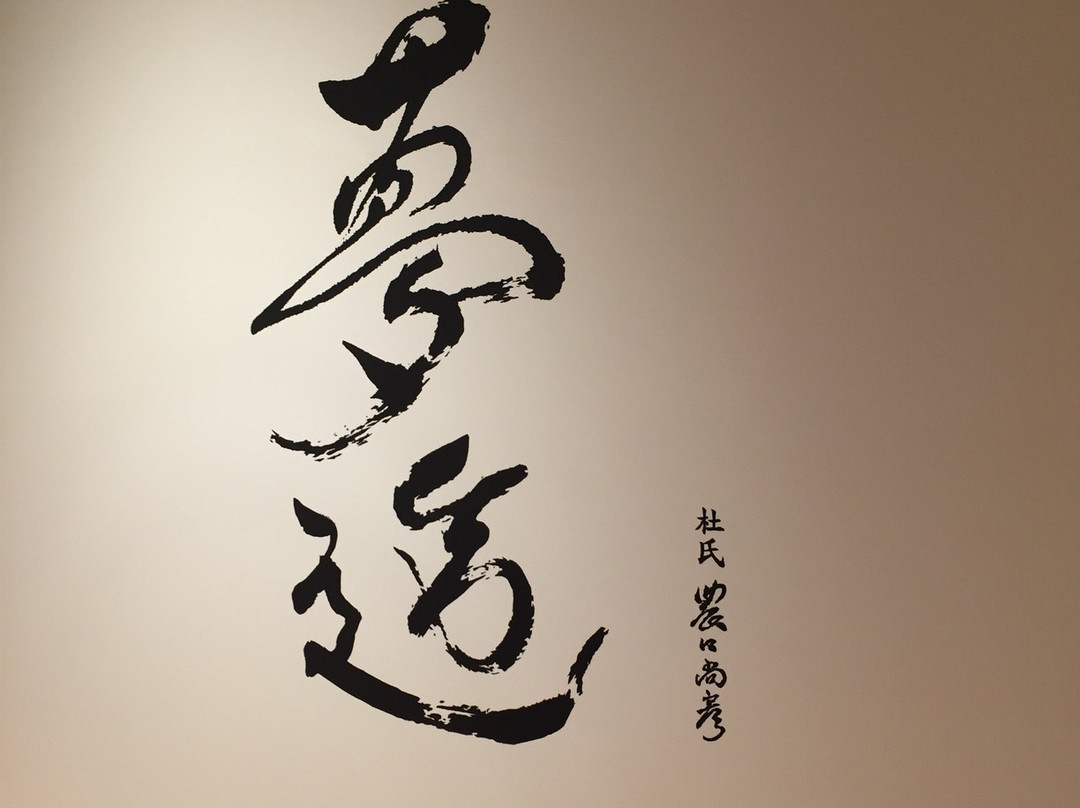 夢
杜氏 農口尚彦